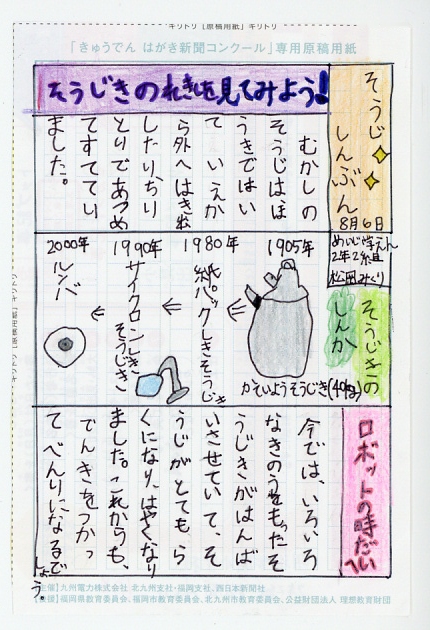 キリトリ [原稿用紙] キリトリ
「きゅうでん はがき新聞コンクール」専用原稿用紙
そうじ
しんぶん
8月6日
めいじ学えん
2年2組
松岡みくり
そうじきのれきしを見てみよう!
むかしの
そうじはほ
うきではい
て いえか
ら外へはき出
したり、ちり
とりであつめ
てすててい
ました。
そうじきの
しんか
1905年
かていようそうじき(40kg)
1980年
紙パックしきそうじき
1990年
サイクロンしき
そうじき
2000年
ルンバ
ロボットの時だいへ
今では、いろいろ
なきのうをもったそ
うじきがはんば
いされていて、そ
うじがとてもら
くになり、はやくなり
ました。これからも、
でんきをつかっ
て べんりになるで
しょう。
【主催】九州電力株式会社 北九州支社・福岡支社、西日本新聞社
【後援】福岡県教育委員会、福岡市教育委員会、北九州市教育委員会、公益財団法人 理想教育財団